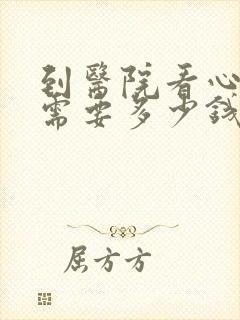 到醫院看心
需要多少錢
屈方方